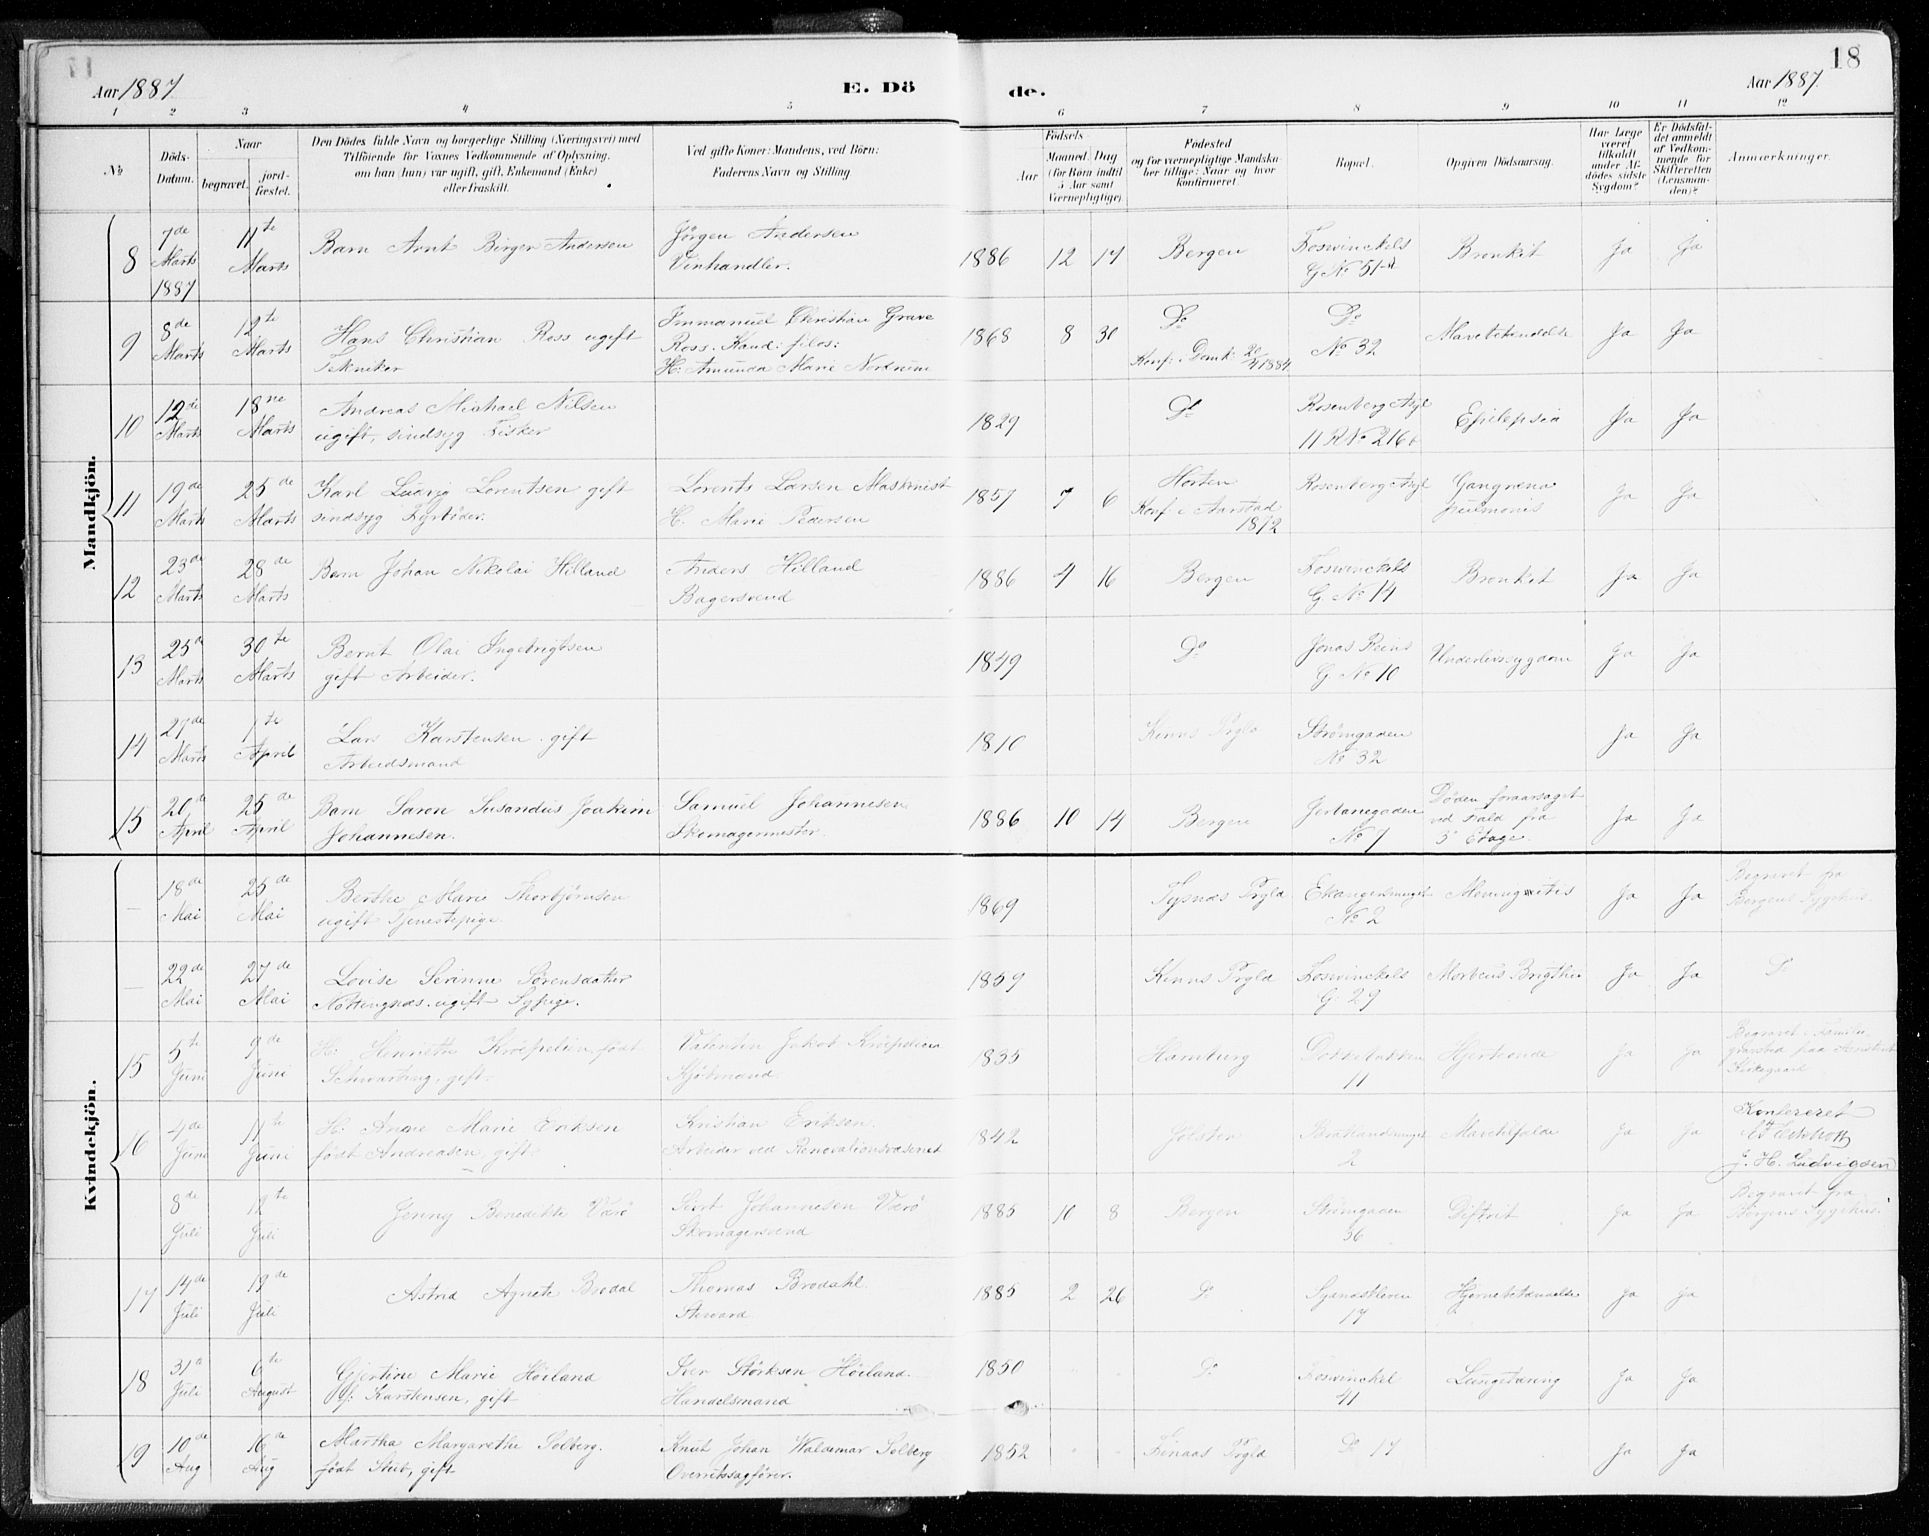 18
Aar 1887.
E. Dö de.
Aar 1887.
1 2 3 4 5 6 7 8 9 10 11 12
№
Döds-Datum.
Naar
begravet.
jord-fæstet.
Den Dödes fulde Navn og borgerlige Stilling (Næringsvei) med
Tilföiende for Voxnes Vedkommende af Oplysning.
om han (hun) var ugift, gift, Enkemand (Enke)
eller fraskilt.
Ved gifte Koner: Mandens, ved Börn:
Faderens Navn og Stilling.
Födsels
Aar
Maaned. Dag
(for Börn indtil
5 Aar samt
Værnepligtige)
Födested
og for værnepligtige Mandska-
ber tillige: Naar og hvor
konfirmeret
Bopæl.
Opgiven Dödsaarsag.
Har Læge
været
tilkaldt
under Af-
dödes sidste
Sygdom?
Er Dödsfal-
det anmeldt
af Vedkom-
mende for
Skifteretten
(Lensman-
den)?
Anmærkninger.
Mandkjön.
8 7de Marts 1887 11te Marts Barn Arnt Birger Andersen Jörgen Andersen Vinhandler. 1886 12 14 Bergen Foswinckels G No 51 Bronkit Ja Ja
9 8de Marts 12te Marts Hans Christian Ross ugift Tekniker Immanuel Christian Grave Ross. Kand: filos: H: Amunda Marie Nordrum 1868 8 30 Do Konf: i Domk: 20/4 1884 Do No 32 Mavebetændelse Ja Ja
10 12de Marts 18ne Marts Andreas Michael Nilsen ugift, sindsyg Fisker 1829 Do Rosenberg Asyl 11 R No 216 Epilepsia Ja Ja
11 19de Marts 25de Marts Karl Ludvig Lorentsen gift sindsyg Fyrböder. Lorents Larsen Maskinist H. Marie Pedersen 1857 7 6 Horten Konf: i Aarstad 1872 Rosenberg Asyl Gangræna pulmonis Ja Ja
12 23de Marts 28de Marts Barn Johan Nikolai Hilland Anders Hilland Bagersvend 1886 4 16 Bergen Foswinckels G. No 14 Bronkit Ja Ja
13 25de Marts 30te Marts Bernt Olai Ingebrigtsen gift Arbeider. 1849 Do Jonas Reins G. No 10 Underlivssygdom Ja Ja
14 27de Marts 1te April Lars Karstensen gift Arbeidsmand 1810 Kinns Prgld Strömgaden No 32 Ja Ja
15 20de April 25de April Barn Saron Susandus Joakim Johannesen. Samuel Johannesen Skomagermester. 1886 10 14 Bergen No 7 Döden foraarsaget ved Fald fra 3' Etage. Ja Ja
Kvindekjön.
– 18de Mai 25de Mai Berthe Marie Thorbjörnsen ugift Tjenestepige. 1869 Tysnæs Prgld Ekangersmuget No 2 Meningitis Ja Ja Begravet fra Bergens Sygehus.
– 22de Mai 27de Mai Lovise Serinne Sörensdatter ugift Sypige. 1859 Kinns Prgld Foswinckels G. 29 Morbus Brigthii Ja Ja Do
15 5te Juni 9de Juni H: Henriette Kröpelien född Schwarting, gift. Valentin Jakob Kröpelien Kjöbmand 1835 Hamburg Dokkebakken 11 Hjertonde Ja Ja Begravet i Familie gravsted paa Kirkegaard
16 4de Juni 11te Juni H: Anne Marie Eriksen född Andreasen, gift Kristian Eriksen, Arbeider ved Renovationsvæsenet 1842 Jölster 2 Ja Ja Konfereret J. H. Ludvigsen
8de Juli 12te Juli Jenny Benedikte Værö Sivert Johannesen Værö Skomagersvend 1885 10 8 Bergen Strömgaden 36 Difterit Ja Ja Begravet fra Bergens Sygehus.
17 14de Juli 19de Juli Astrid Agnete Brodal Thomas Brodahl. Steward 1885 2 26 Do 17 Hjernebetændelse Ja Ja
18 31te Juli 6te August Gjertine Marie Höiland f. Karstensen, gift Iver Störksen Höiland. Handelsmand 1850 Do Foswinckel 41 Lungetæring Ja Ja
19 10de Aug 16de Aug Martha Margarethe Solberg. född Stub, gift Knut Johan Waldemar Solberg Overretssagförer. 1852 Finaas Prgld Do 17 Ja Ja